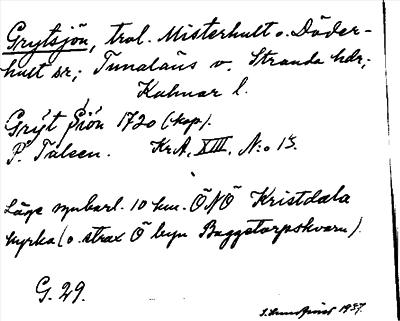 Grytsjön, trol. Misterhult o. Döder-
hult sr; Tunaläns o. Stranda hdr;
Kalmar l.
Grÿt Siön 1720 (kop).
P. Tulsen. KrA, XIII, N:o 13.
Läge synbarl. 10 km. ÖNÖ Kristdala
kyrka (o. strax Ö byn Baggetorpskvarn).
G. 29.
1937.